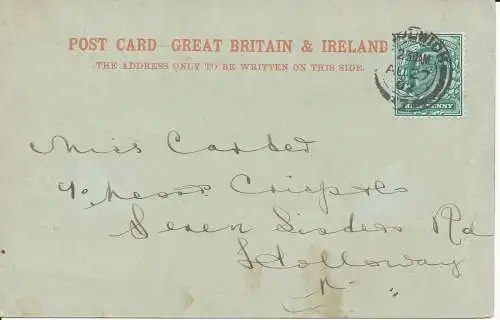 POST CARD GREAT BRITAIN & IRELAND
THE ADDRESS ONLY TO BE WRITTEN ON THIS SIDE.
Miss Carter
c/o Messrs Crisp & Co
Seven Sisters Rd
Holloway
N.